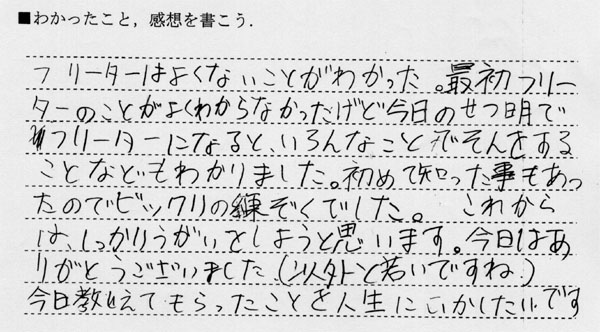 ■わかったこと，感想を書こう．
フリーターはよくないことがわかった。最初フリー
ターのことがよくわからなかったけど今日のせつ明で
フリーターになると、いろんなことでそんをする
ことなどもわかりました。初めて知った事もあっ
たのでビックリの練ぞくでした。これから
は、しっかりうがいをしようと思います。今日はあ
りがとうございました(以外と若いですね)
今日教えてもらったことを人生にいかしたいです